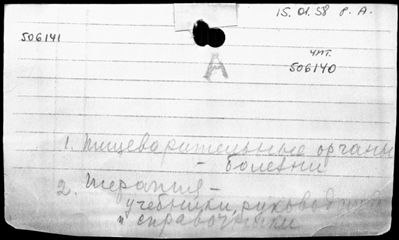 15.01.58 г. А.
506141
чит.
506140
А
1. Пищеварительные органы
- болезни
2. Терапия -
учебники, руководства
и справочники